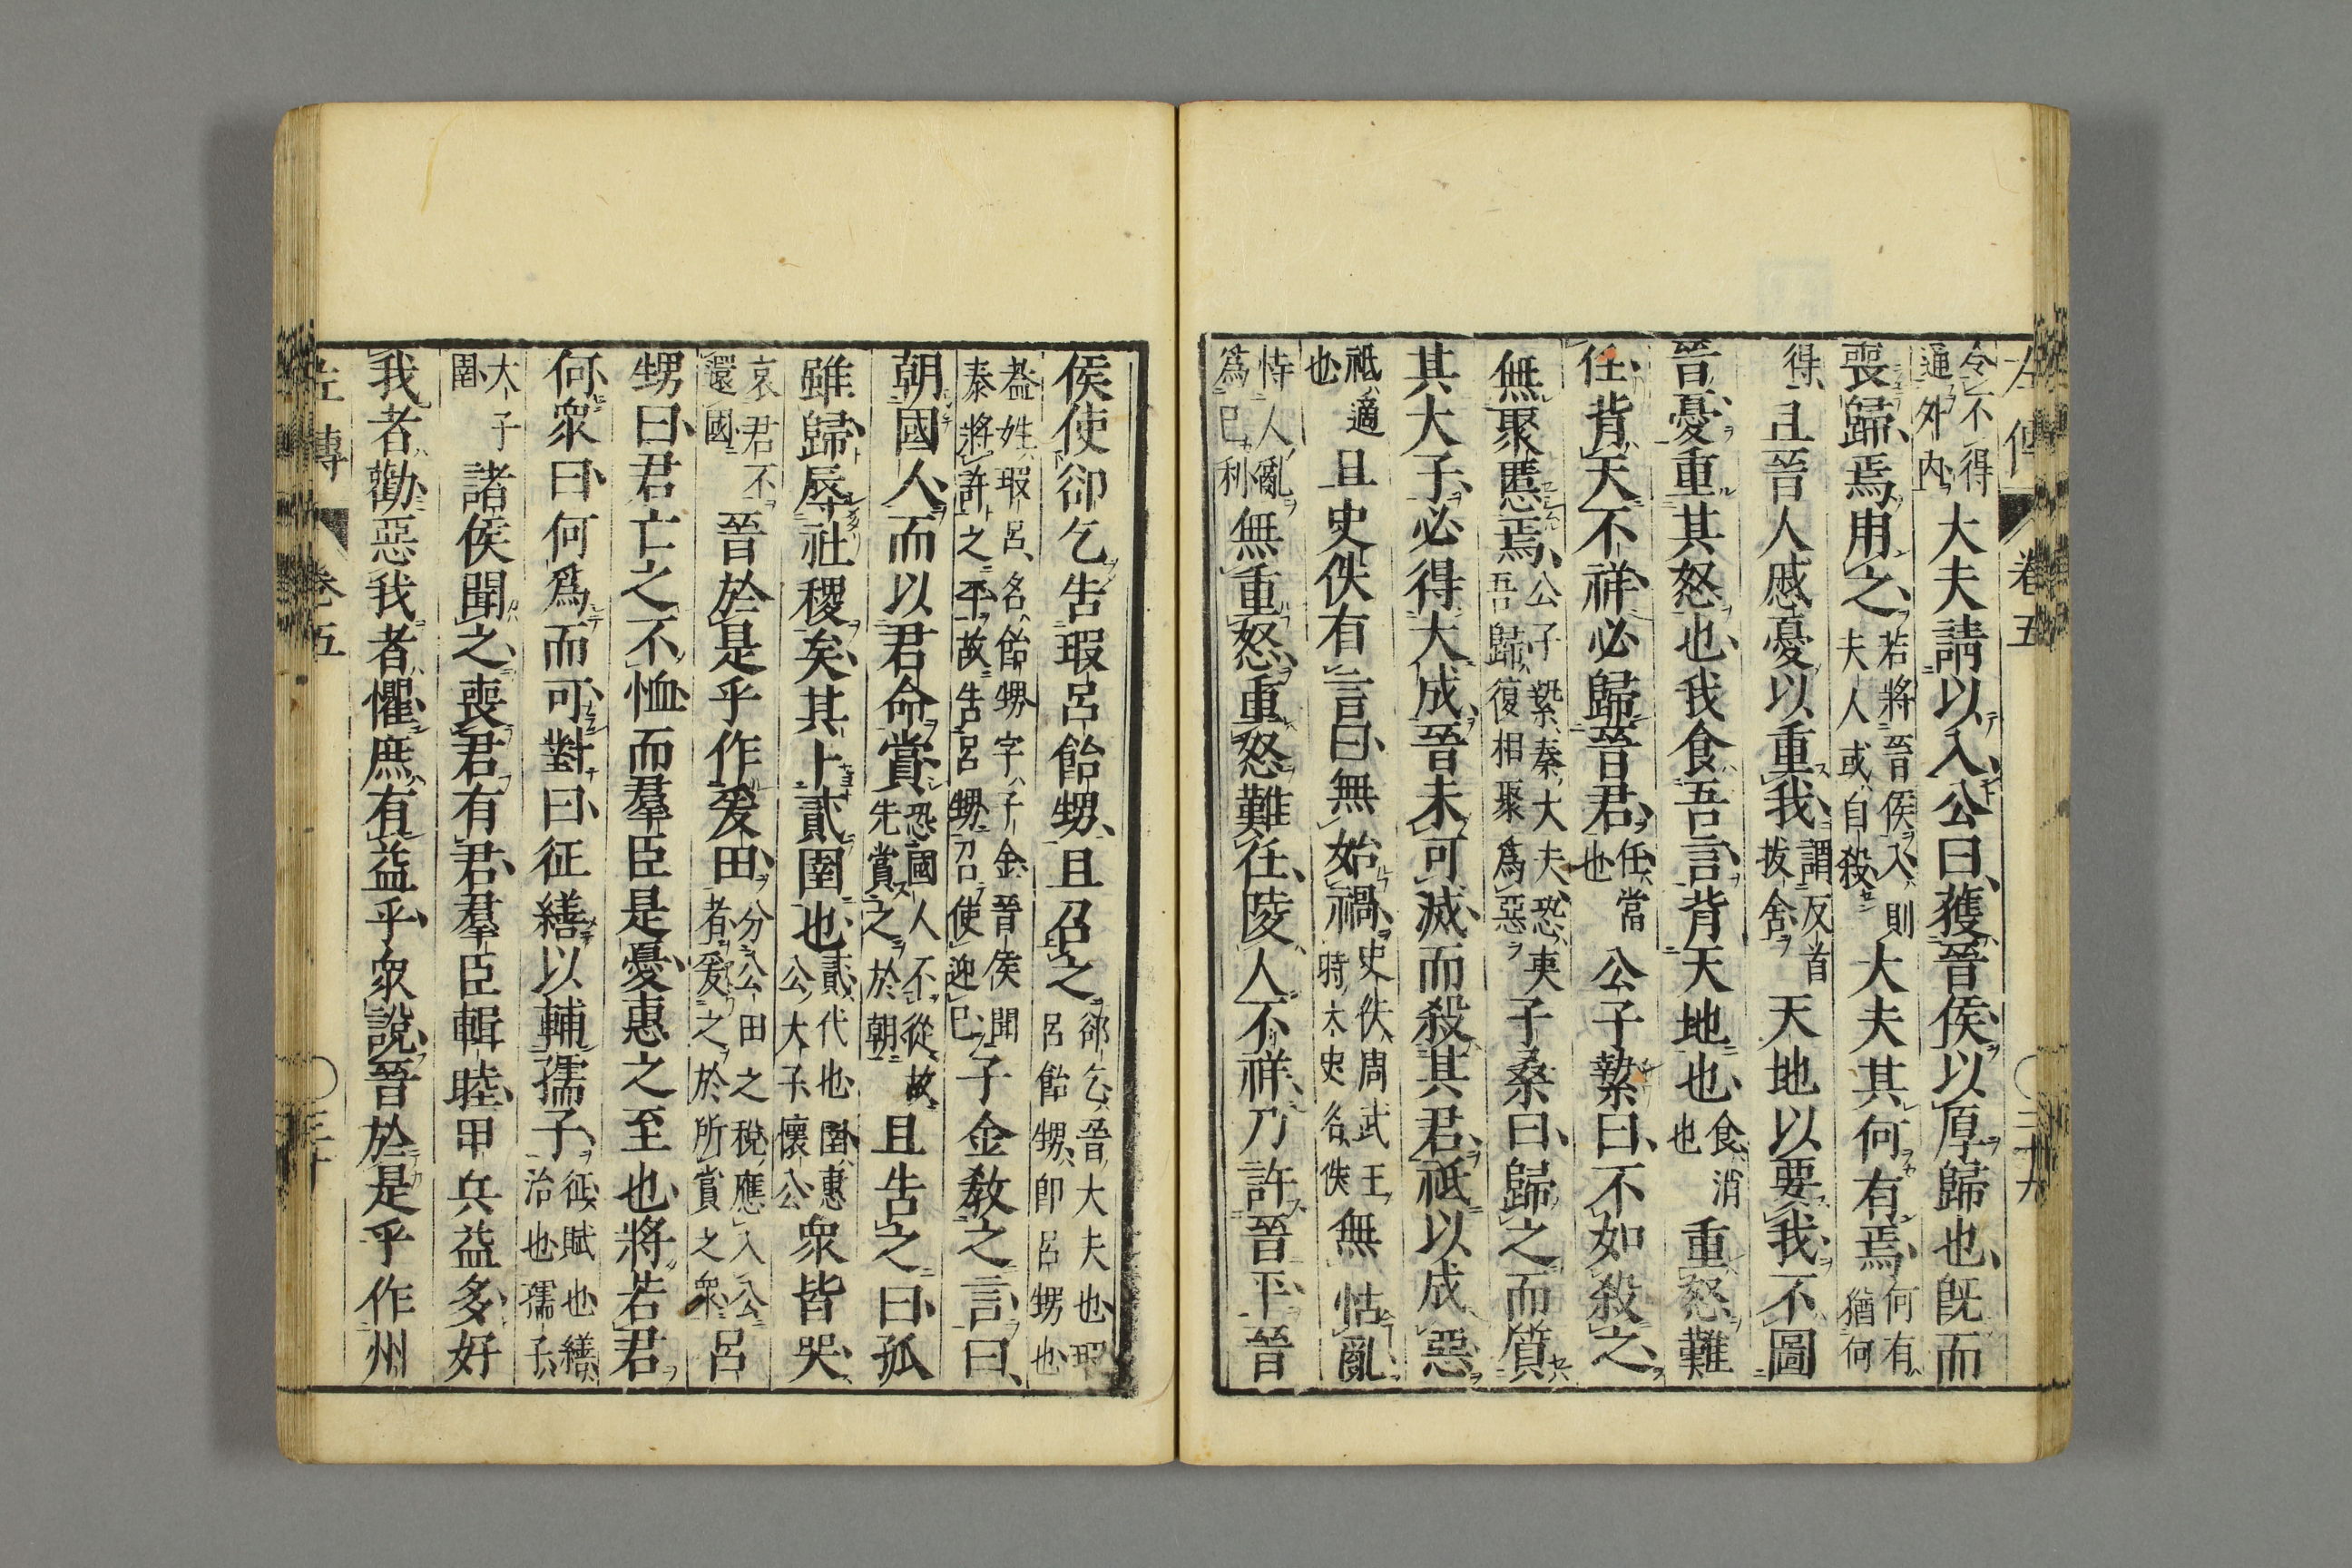 左傳 卷五 ○三十九
令不得通外內大夫請以入公曰獲晉侯以厚歸也旣而
喪歸焉用之若將晉侯入則夫人或自殺大夫其何有焉何有猶何
得且晉人慼憂以重我謂反首拔舍天地以要我不圖
晉憂重其怒也我食吾言背天地也食消也重怒難
任背天不祥必歸晉君任當也公子縶曰不如殺之
無聚慝焉公子縶秦大夫恐夷吾歸復相聚爲惡子桑曰歸之而質
其大子必得大成晉未可滅而殺其君祗以成惡
祗適也且史佚有言曰無始禍史佚周武王時太史名佚無怙亂
恃人亂爲己利無重怒重怒難任陵人不祥乃許晉平晉
侯使郤乞告瑕呂飴甥且召之郤乞晉大夫也瑕呂飴甥卽呂甥也
蓋姓瑕呂名飴甥字子金晉侯聞秦將許之平故告呂甥召使迎己子金敎之言曰
朝國人而以君命賞恐國人不從故先賞之於朝且告之曰孤
雖歸辱社稷矣其卜貳圉也貳代也圉惠公大子懷公衆皆哭
哀君不還國晉於是乎作爰田分公田之稅應入公者爰之於所賞之衆呂
甥曰君亡之不恤而羣臣是憂惠之至也將若君
何衆曰何爲而可對曰征繕以輔孺子征賦也繕治也孺子
太子圉諸侯聞之喪君有君羣臣輯睦甲兵益多好
我者勸惡我者懼庶有益乎衆說晉於是乎作州
左傳 卷五